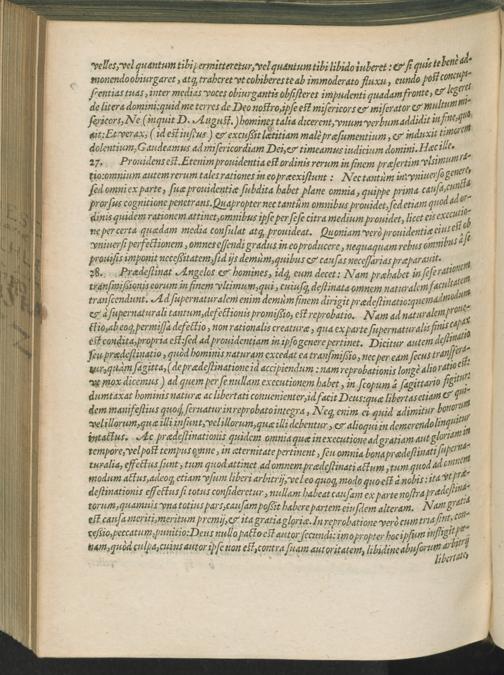 velles, vel quantum tibi permitteretur, vel quantum tibi libido iuberet: & si quis te benè ad-
monendo obiurgaret, atq; traheret vt cohiberes te ab immoderato fluxu, eundo post concupi-
scentias tuas, inter medias voces obiurgantis obsisteres impudenti quadam fronte, & legeres
de litera domini: quid me terres de Deo nostro, ipse est misericors & miserator & multum mi-
sericors, Ne (inquit D. August.) homines talia dicerent, vnum verbum addidit in fine, quo
ait; Et verax; (id est iustus) & excussit lætitiam malè præsumentium, & induxit timorem
dolentium, Gaudeamus ad misericordiam Dei, & timeamus iudicium domini. Hæc ille.
27. Providens est. Etenim providentia est ordinis rerum in finem præsertim vltimum ra-
tio: omnium autem rerum tales rationes in eo præexistunt: Nec tantùm in vniuerso genere,
sed omni ex parte, suæ providentiæ subdita habet plane omnia, quippe prima causa, cuncta
prorsus cognitione penetrans. Quapropter nec tantùm omnibus providet, sed etiam quod ad or-
dinis quidem rationem attinet, omnibus ipse per se se citra medium providet, licet eis executio-
ne per certa quædam media consulat atq; provideat. Quoniam verò providentiæ eius est ob
vniuersi perfectionem, omnes essendi gradus in eo producere, nequaquam rebus omnibus à se
provisis imponit necessitatem, sed ijs demùm, quibus & causas necessarias præparauit.
28. Prædestinat Angelos & homines, idq; eum decet: Nam præhabet in sese rationem
transmissionis eorum in finem vltimum, qui, cuiusq; destinata omnem naturalem facultatem
transcendunt. Ad supernaturalem enim demùm finem dirigit prædestinatio: quemadmodum
& à supernaturali tantum, defectionis promissio, est reprobatio. Nam ad naturalem prouec-
tio, ab eoq; permissa defectio, non rationalis creaturæ, qua ex parte supernaturalis finis capax
est condita, propria est: sed ad providentiam in ipso genere pertinet. Dicitur autem destinatio
seu prædestinatio, quòd hominis naturam excedat ea transmissio, nec per eam secus transfera-
tur, quàm sagitta, (de prædestinatione id accipiendum: nam reprobationis longè alio ratio est:
vt mox dicemus) ad quem per se nullam executionem habet, in scopum à sagittario figitur:
duntaxat hominis naturæ ac libertati convenienter, id facit Deus: quæ libertas etiam & qui-
dem manifestius quoq; servatur in reprobato integra, Neq; enim ei quid adimitur bonorum
vel illorum, quæ illi insunt, vel illorum, quæ illi debentur, & alioqui in demerendo linquitur
intactus. Ac prædestinationis quidem omnia quæ in executione ad gratiam aut gloriam in
tempore, vel post tempus omne, in æternitate pertinent, seu omnia bona prædestinati superna-
turalia, effectus sunt, tum quod attinet ad omnem prædestinati actum, tum quod ad omnem
modum actus, adeoq; etiam vsum liberi arbitrij, vel eo quoq; modo quo est à nobis: ita vt præ-
destinationis effectus si totus consideretur, nullam habeat causam ex parte nostra prædestina-
torum, quamuis vna totius pars, causam possit habere partem eiusdem alteram. Nam gratia
est causa meriti, meritum premij, & ita gratia gloriæ. In reprobatione verò cum tria sint, con-
cessio, peccatum, punitio: Deus nullo pacto est autor secundi: imo propter hoc ipsum infligit pœ-
nam, quòd culpa, cuius autor ipse non est, contra suam autoritatem, libidine abusorum arbitrij
libertate,